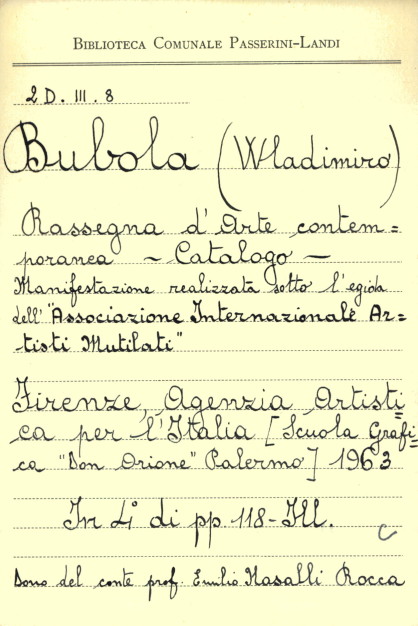 BIBLIOTECA COMUNALE PASSERINI-LANDI
2 D. III. 8
Bubola (Wladimiro)
Rassegna d'Arte contem=
poranea - Catalogo -
Manifestazione realizzata sotto l'egida
dell' "Associazione Internazionale Ar-
tisti Mutilati"
Firenze, Agenzia Artisti=
ca per l'Italia [Scuola Grafi=
ca "Don Orione" Palermo] 1963
In 4° di pp. 118-Ill.
C
Dono del conte prof. Emilio Nasalli Rocca